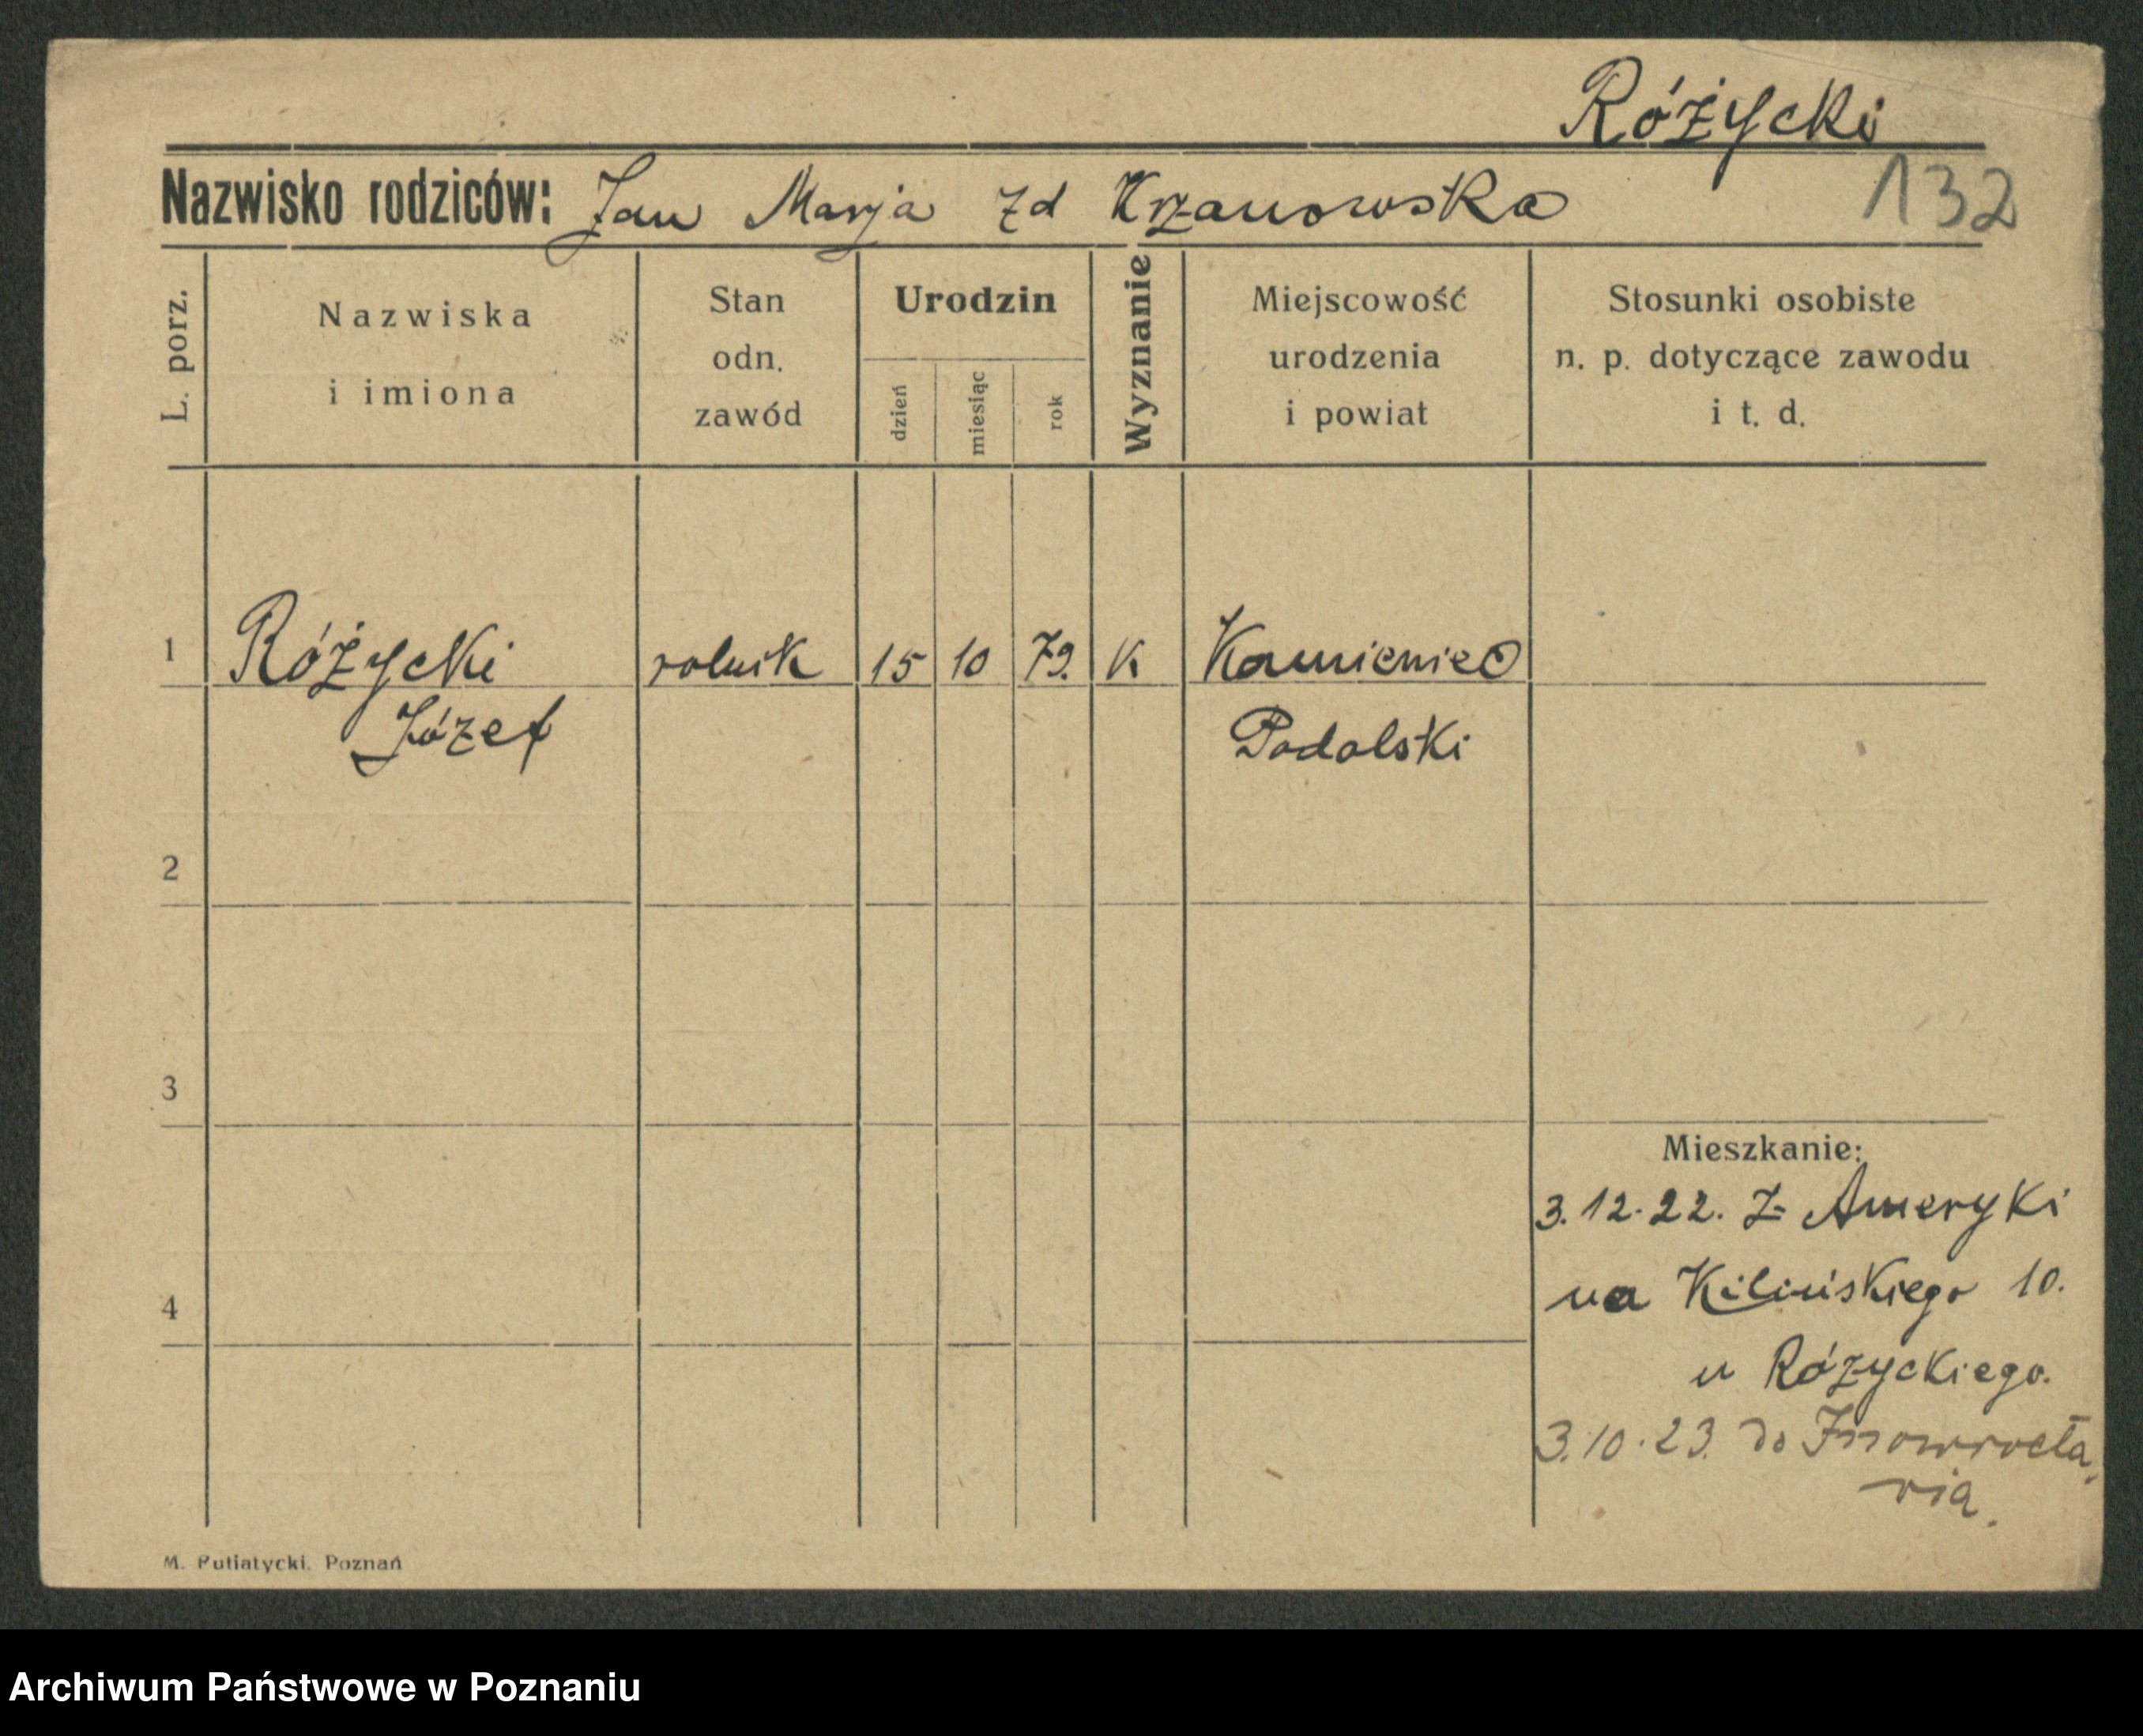 Różycki
Nazwisko rodziców: Jan Marja zd Krzanowska
132
L. porz.
Nazwiska
i imiona
Stan
odn.
zawód
Urodzin
dzień
miesiąc
rok
Wyznanie
Miejscowość
urodzenia
i powiat
Stosunki osobiste
n. p. dotyczące zawodu
i t. d.
1 Różycki rolnik 15 10 79. K Kamieniec
Józef Podolski
2
3
Mieszkanie:
3.12.22. Z Ameryki
4 na Kilińskiego 10.
u Różyckiego.
3.10.23. do Inowrocła
wia.
M. Putiatycki. Poznań
Archiwum Państwowe w Poznaniu